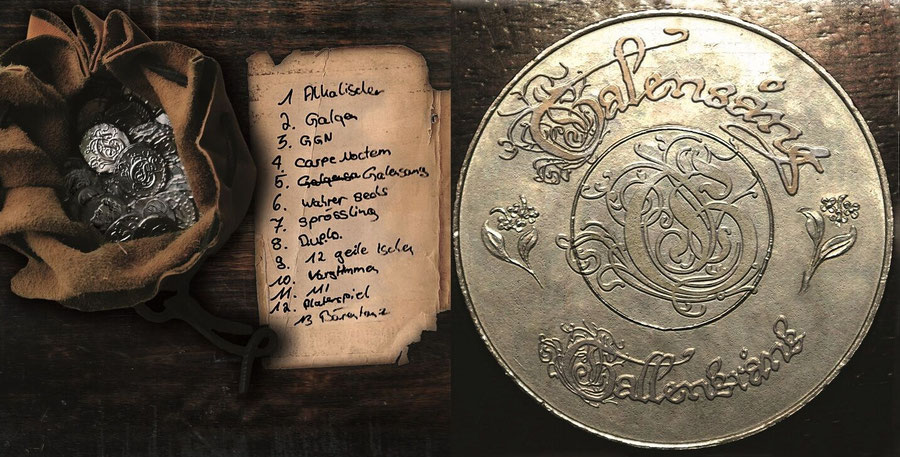 1 Alkalischer
2. Galgen
3. GGN
4 Carpe Noctem
5. Galgensa Galensang
6. Wahrer sechs
7 Sprössling
8 Duflo.
9. 12 geile Ischen
10. Vorstimmen
11. 111
12. Platerspiel
13 Bärentanz
Galensang
Gallenkrank